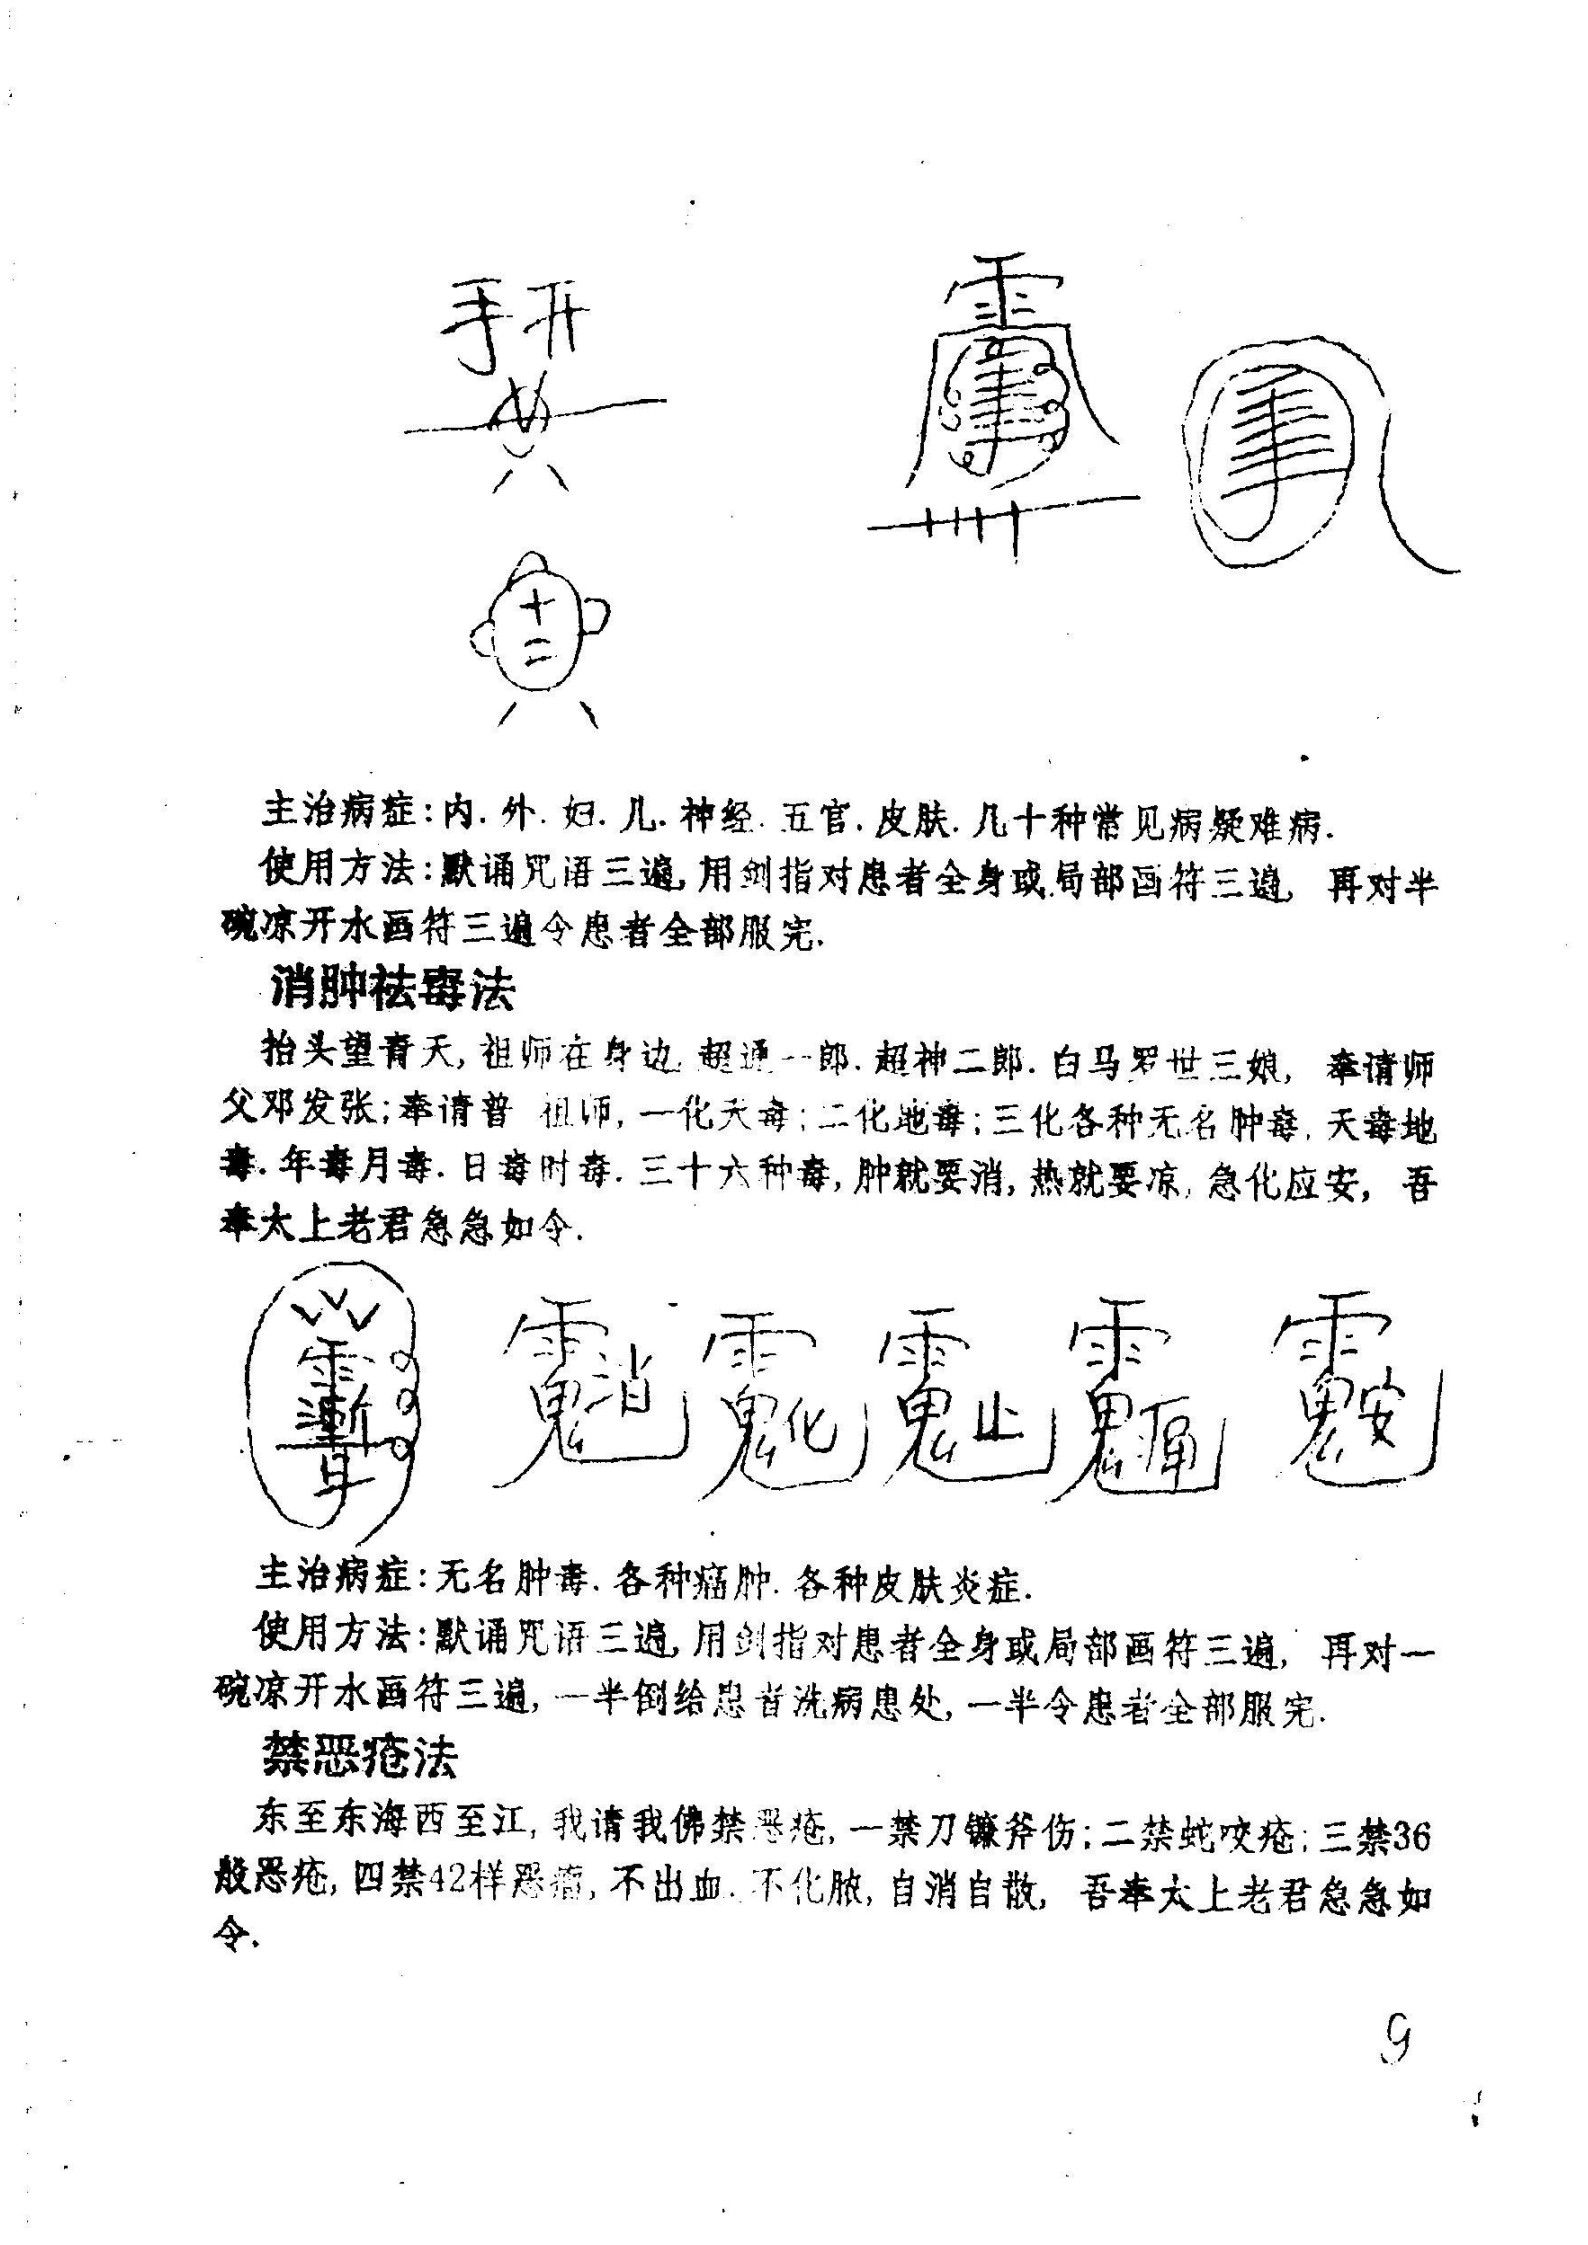 主治病症:内.外.妇.儿.神经.五官.皮肤.几十种常见病疑难病.
使用方法:默诵咒语三遍,用剑指对患者全身或局部画符三遍, 再对半
碗凉开水画符三遍令患者全部服完.
消肿祛毒法
抬头望青天,祖师在身边.超通一郎.超神二郎.白马罗世三娘, 奉请师
父邓发张;奉请普 祖师,一化天毒;二化地毒;三化各种无名肿毒,天毒地
毒.年毒月毒.日毒时毒.三十六种毒,肿就要消,热就要凉,急化应安, 吾
奉太上老君急急如令.
雨鬼消 雨鬼化 雨鬼止 雨鬼痛 雨鬼安
主治病症:无名肿毒.各种痛肿.各种皮肤炎症.
使用方法:默诵咒语三遍,用剑指对患者全身或局部画符三遍, 再对一
碗凉开水画符三遍,一半倒给患者洗病患处,一半令患者全部服完.
禁恶疮法
东至东海西至江,我请我佛禁恶疮,一禁刀镰斧伤;二禁蛇咬疮;三禁36
般恶疮,四禁42样恶瘤,不出血.不化脓,自消自散, 吾奉太上老君急急如
令.
9